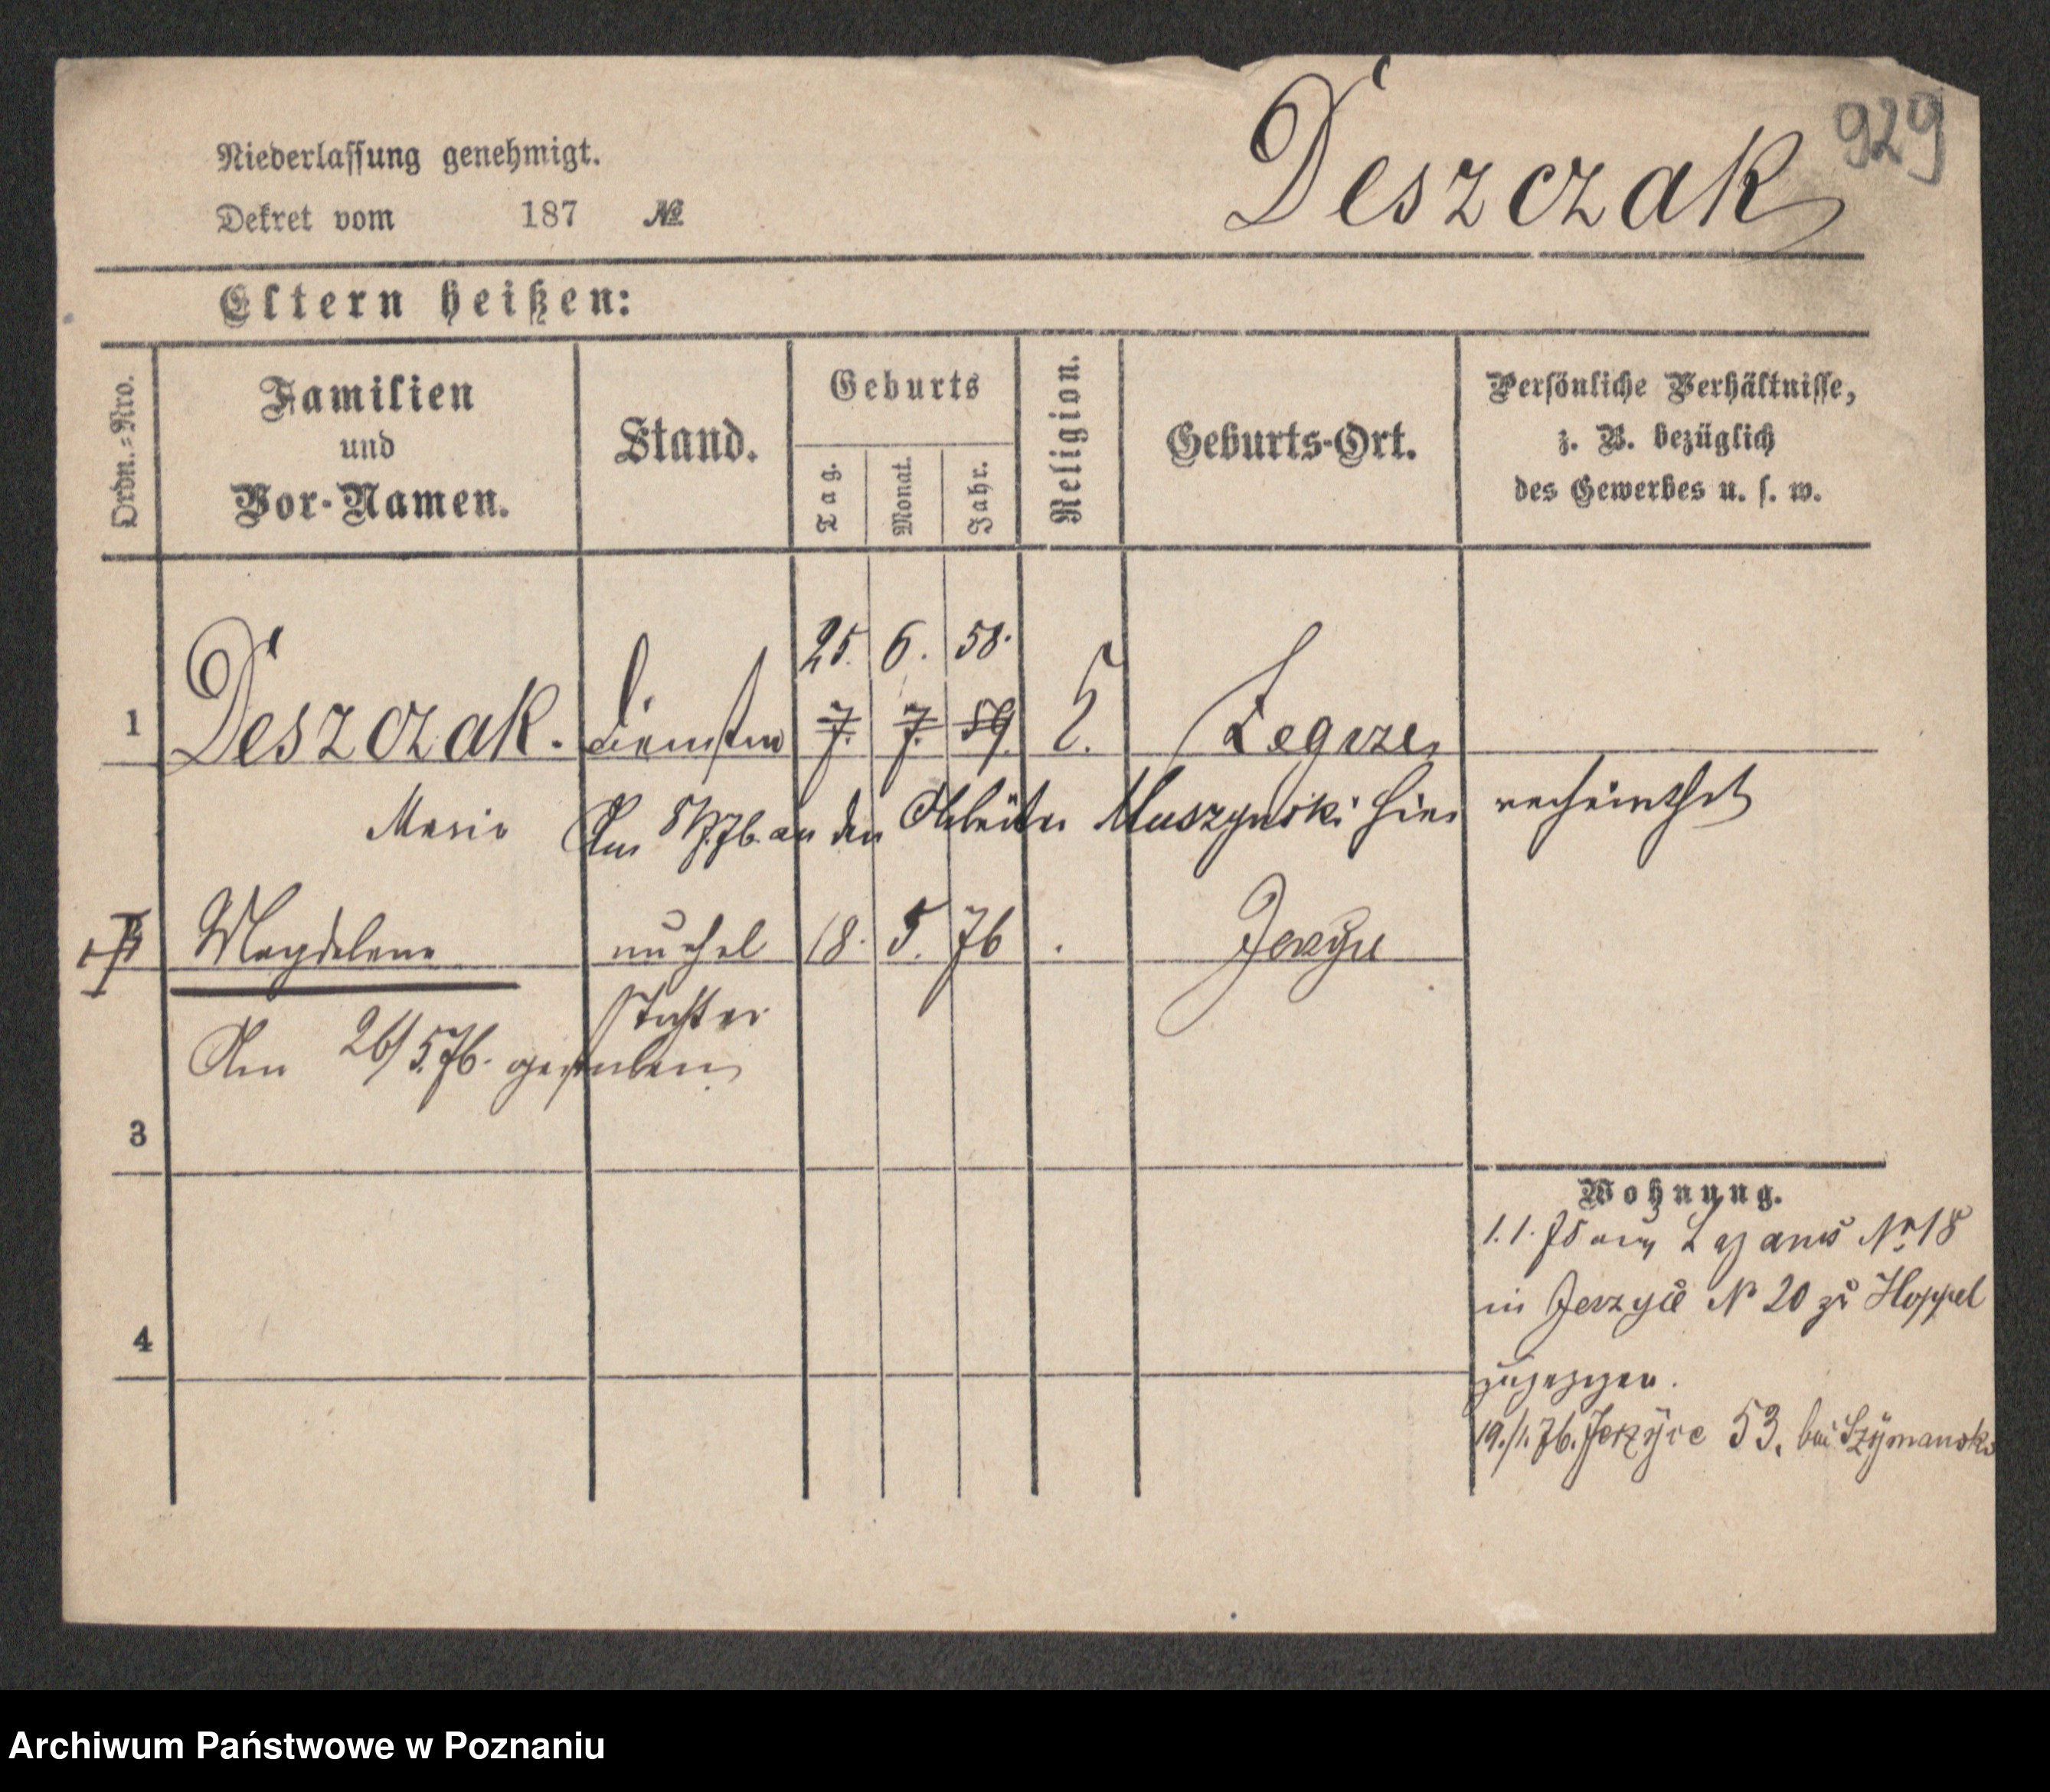 929
Deszczak
Niederlassung genehmigt.
Dekret vom 187 №
Eltern heißen:
Ordn.=Nro.
Familien
und
Vor-Namen.
Stand.
Geburts
Tag.
Monat.
Jahr.
Religion.
Geburts-Ort.
Persönliche Verhältnisse,
z. B. bezüglich
des Gewerbes u. s. w.
25. 6. 58.
1 Deszczak. 7. 7. 59. Zegrze
Marie Am an den Arbeiter Muszynski hier verheirathet
Magdalena unehel 18. 5. 76 Jerzyce
Tochter
Am 26/5.76. gestorben
3
Wohnung.
1.1. aus Lazarus No 18
in Jerzyce No 20 zu Hoppel
zugezogen.
19./1.76. Jerzyce 53. bei Szymanski
4
Archiwum Państwowe w Poznaniu